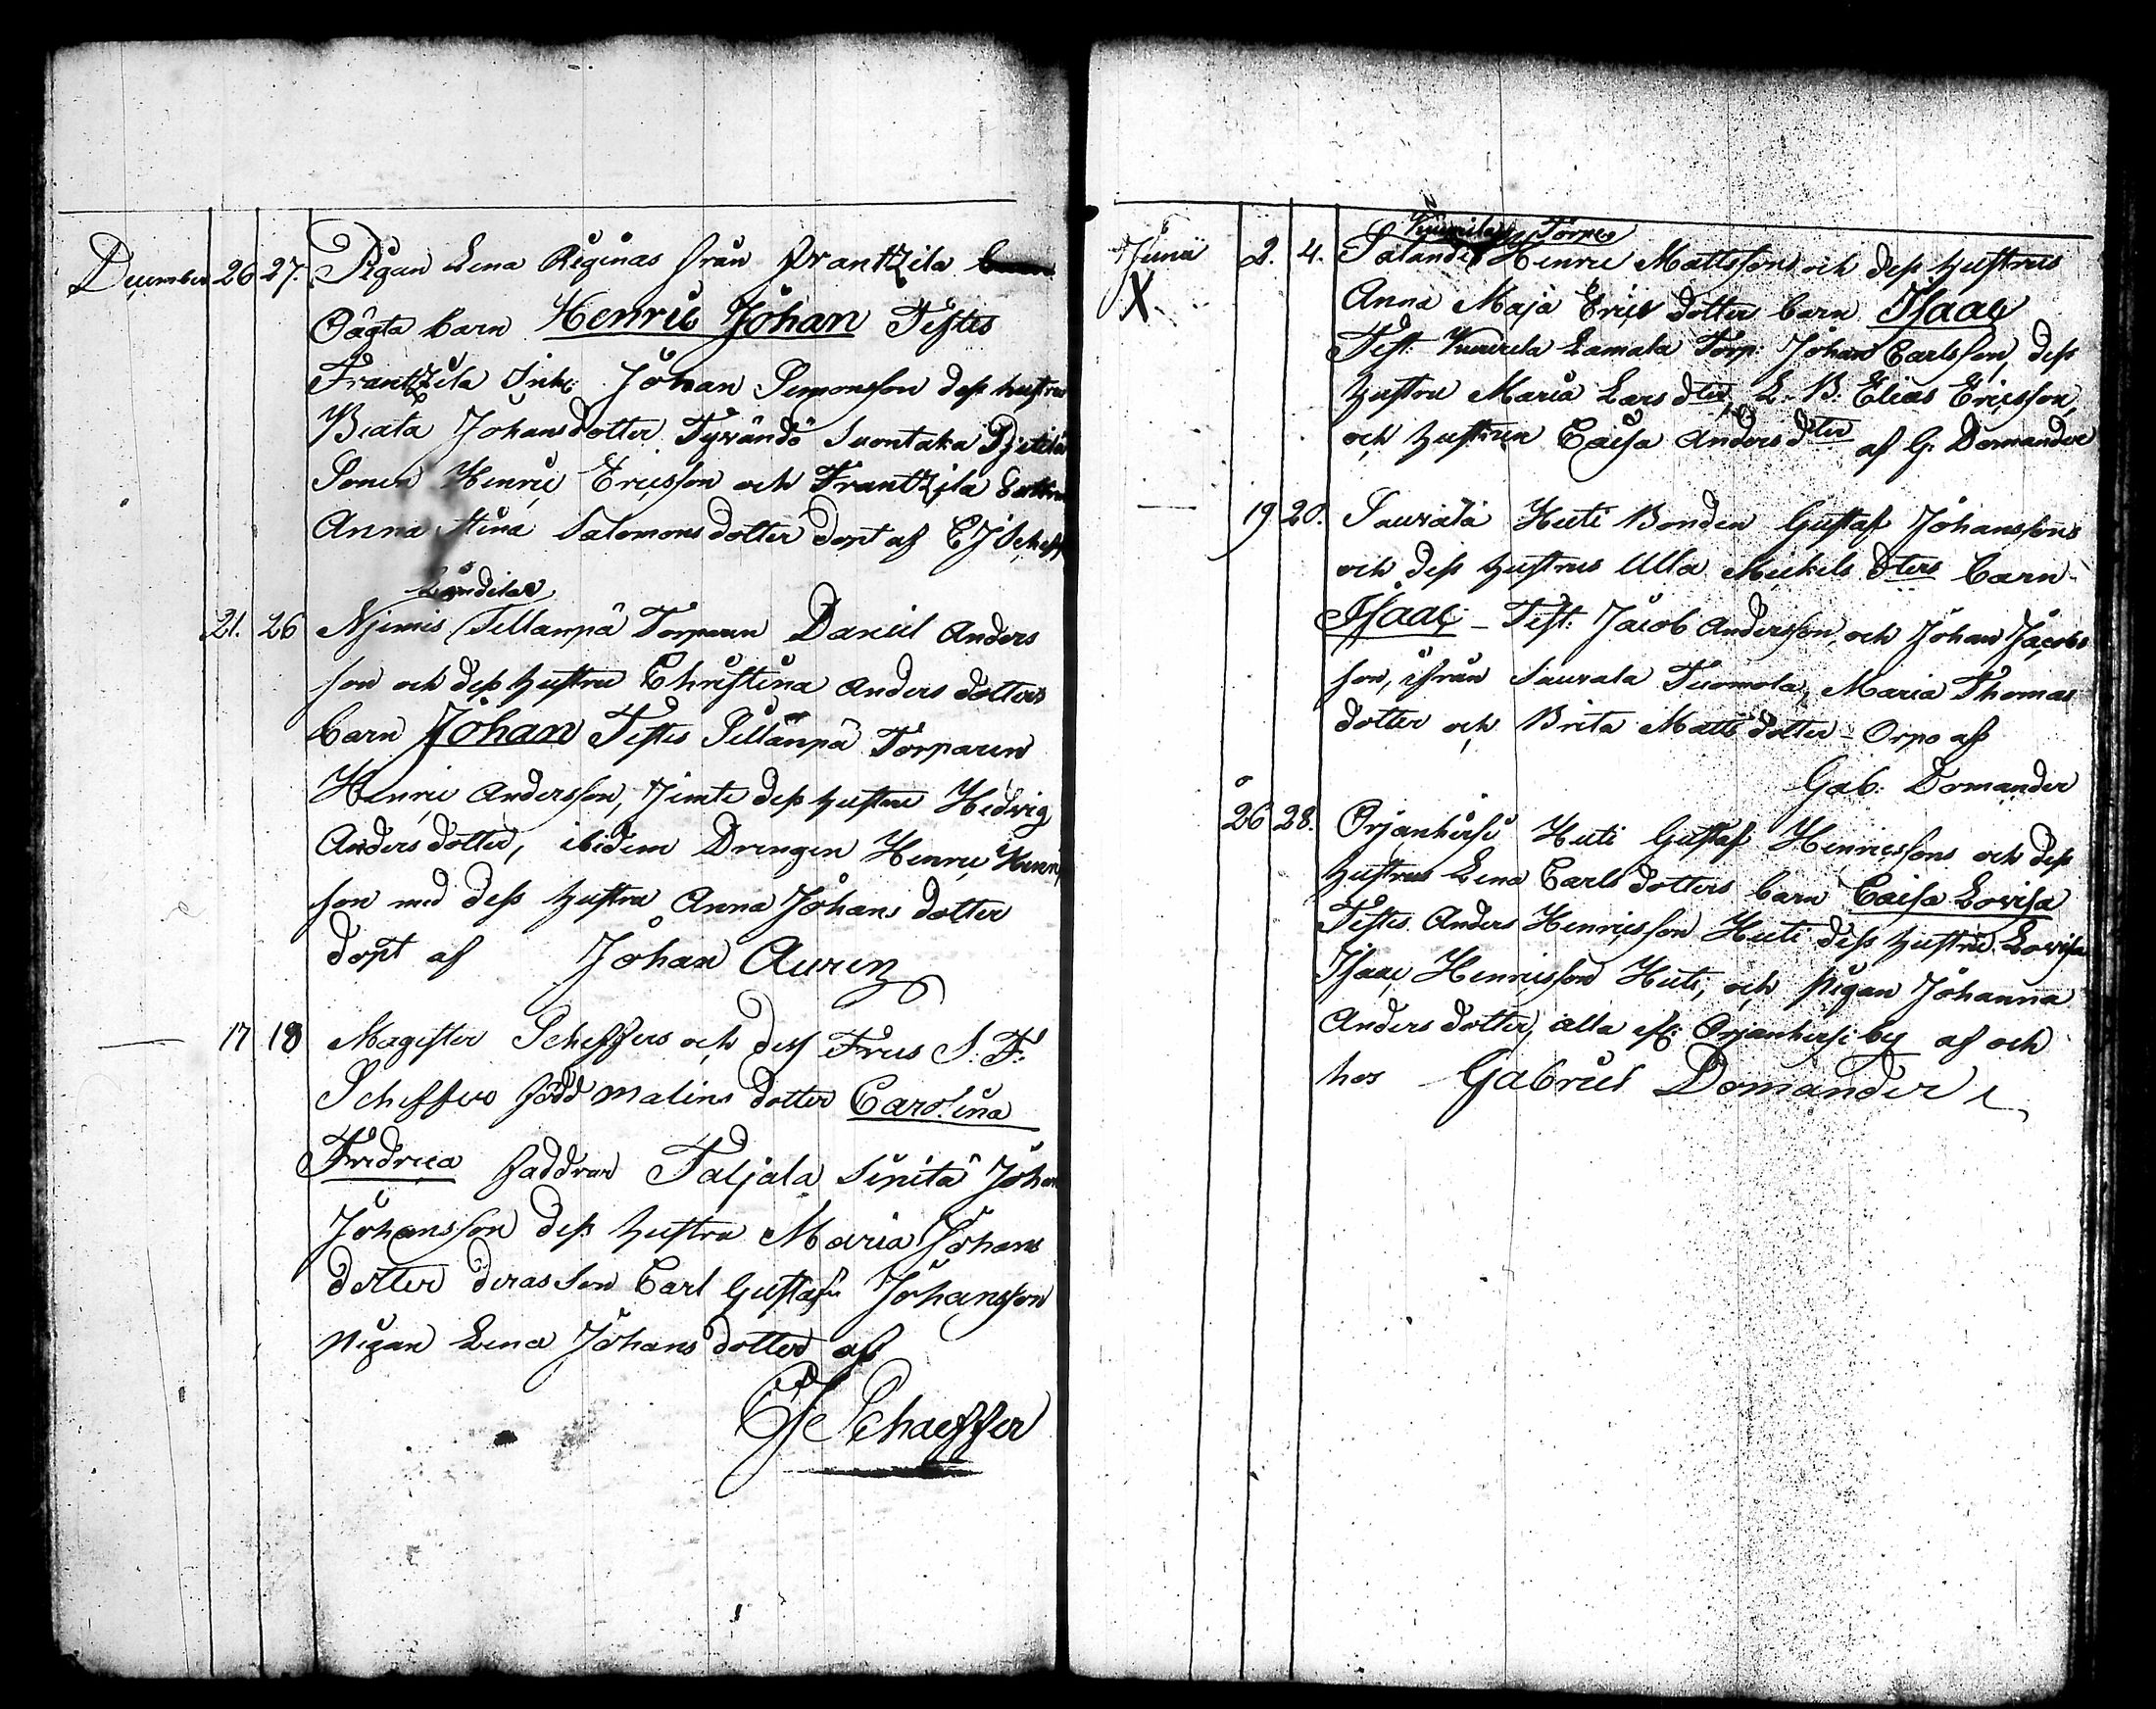 December 26 27. Pigan Lena Reginas från Frantzila
Oägta barn Henric Johan Testes
Frantzila Inh: Johan Simonsson dess hustru
Beata Johansdotter Tyrändö Suontaka
Sonen Henric Ericsson och Frantzila
Anna Stina Salomons dotter dopt af CJ Scheff
21. 26 Njemis Sillanpä Torparen Daniel Anders
son och dess hustru Christina Anders dotters
barn Johan Testes Sillänpä Torparen
Henric Andersson, jemte dess hustru Hedvig
Anders dotter, ibidem Drengen Henric Henric
son med dess hustru Anna Johans dotter
dopt af Johan Auren
17 18 Magister Scheffers och dess Frus S. F.
Scheffers född Malins dotter Carolina
Fredrica faddrar Taljala Sipilä Johan
Johansson dess hustru Maria Johans
dotter deras son Carl Gustaf Johansson
pigan Lena Johans dotter af
CJ Schaeffer
Torpes
Junii 2. 4. Henric Mattssons och dess hustrus
X Anna Maja Erics dotter barn Isaac
Test: Lamala Torp: Johan Carlsson, dess
hustru Maria Lars dter, L. B. Elias Ericsson,
och hustrun Caisa Anders dter af G. Domander
19 20. Saurala Huti Bonden Gustaf Johanssons
och dess hustrus Ulla Mickels dters barn
Isaac - Test: Jacob Andersson, och Johan Jacobs
son, ifrån Saurala Tuomola, Maria Thomas
dotter och Brita Matts dotter - Orpo af
Gab: Domander
26 28. Orjanhersi Huti Gustaf Henricssons och dess
hustrus Lena Carls dotters barn Caisa Lovisa
Testes Anders Henricsson Huti dess hustru Lovisa
Isaac Henricsson Huti, och pigan Johanna
Anders dotter, alla ifr: Orjanhersi by af och
hos Gabriel Domander